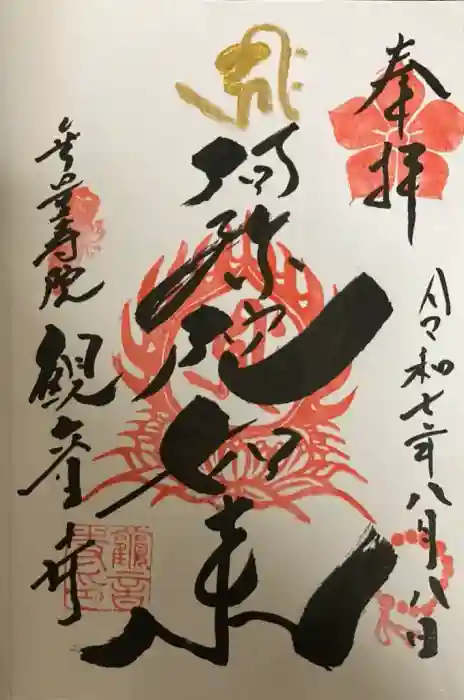 奉拝
令和七年八月八日
阿弥陀如来
無量寿院
観音寺
觀音
寺印